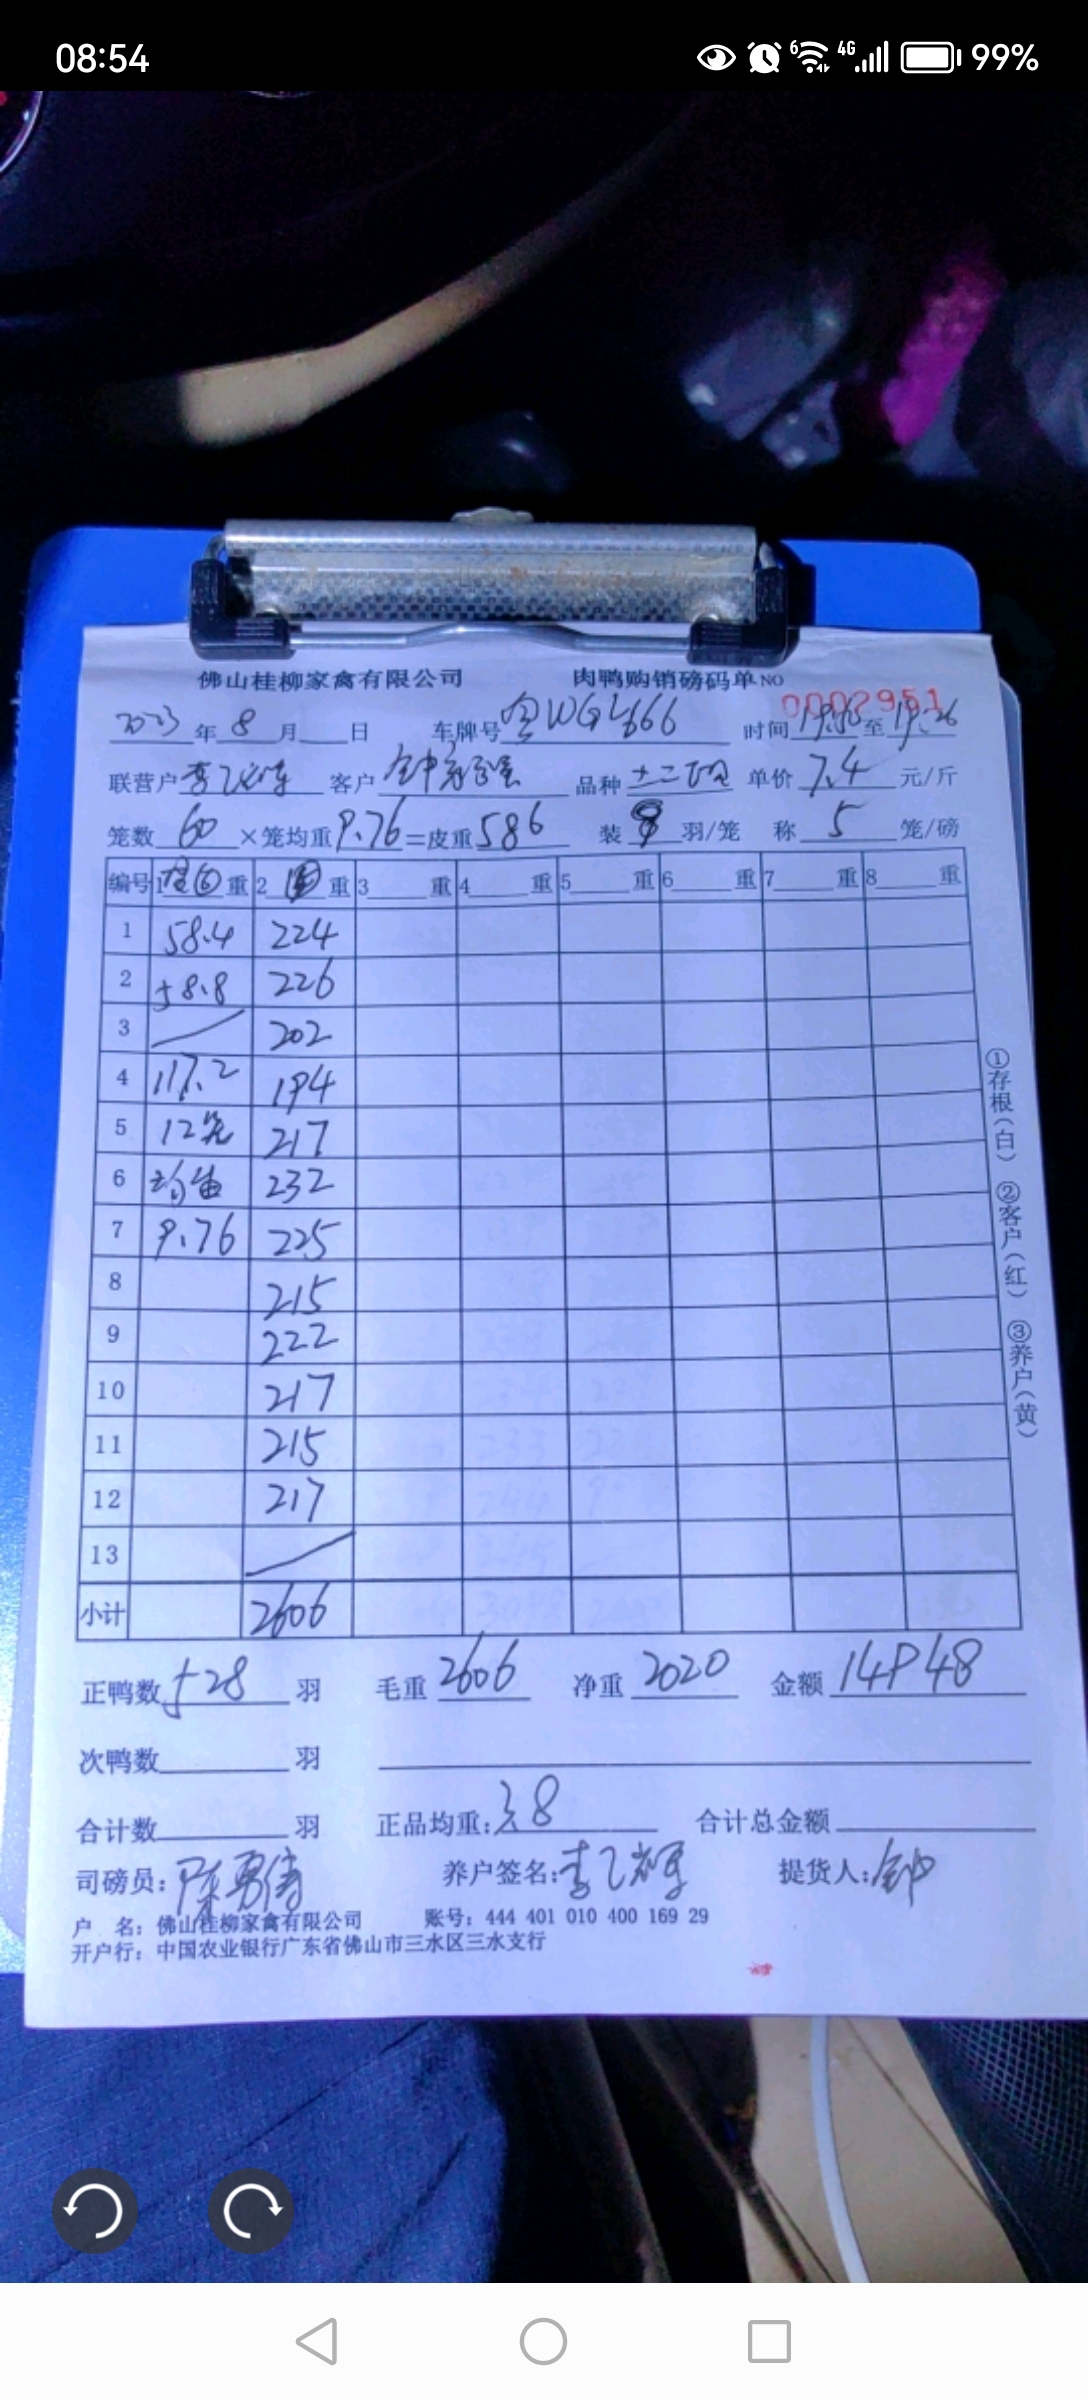 08:54 6 4G 99%
佛山桂柳家禽有限公司 肉鸭购销磅码单 NO 0002951
2023年8月 日 车牌号 WGL666 时间 至19:26
联营户 客户 品种 单价7.4元/斤
笼数60×笼均重9.76=皮重586 装 羽/笼 称5笼/磅
编号 1 重 2 重 3 重 4 重 5 重 6 重 7 重 8 重
1 58.4 224
2 58.8 226
3 202
4 117.2 194
5 12笼 217
6 均重 232
7 9.76 225
8 215
9 222
10 217
11 215
12 217
13
小计 2606
正鸭数528羽 毛重2606 净重2020 金额14948
次鸭数 羽
合计数 羽 正品均重:3.8 合计总金额
司磅员:陈勇 养户签名:李 提货人:钟
户 名:佛山桂柳家禽有限公司 账号:444 401 010 400 169 29
开户行:中国农业银行广东省佛山市三水区三水支行
①存根(白) ②客户(红) ③养户(黄)